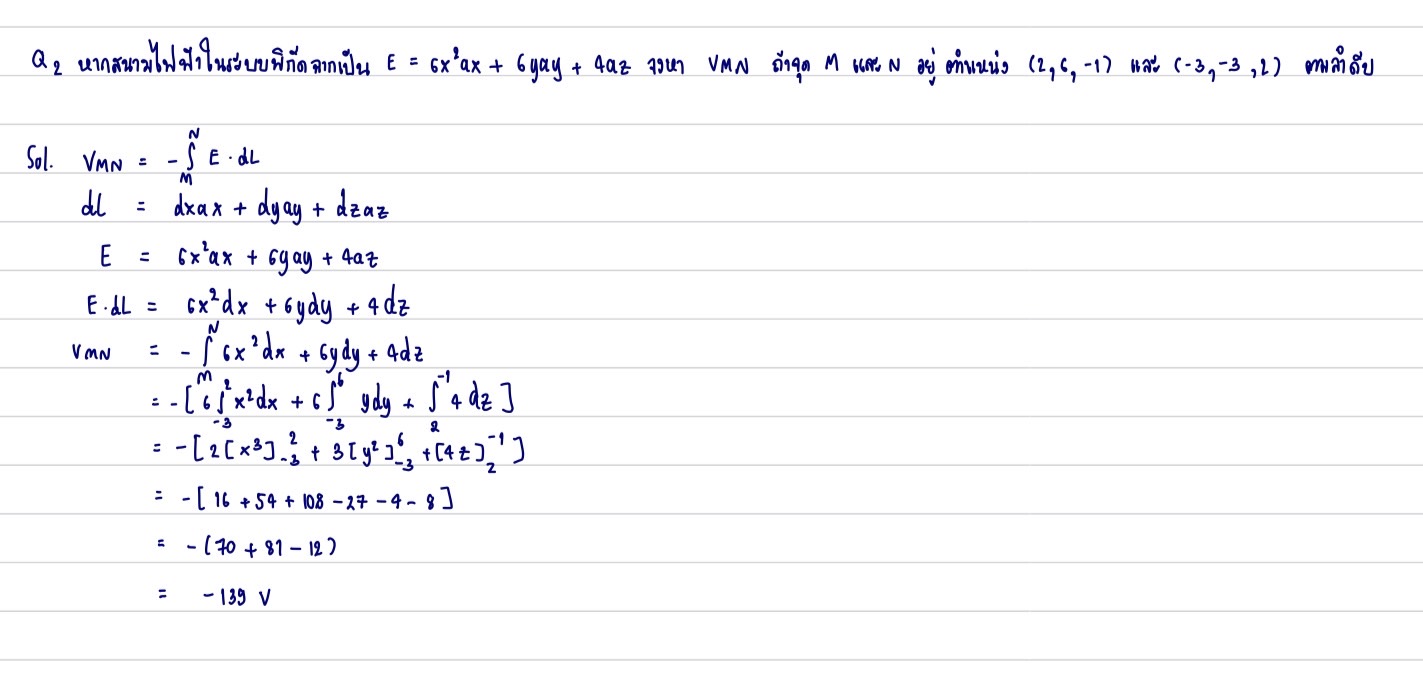 Q2 หากสนามไฟฟ้าในระบบพิกัดฉากเป็น E = 6x²ax + 6yay + 4az จงหา VMN ถ้าจุด M และ N อยู่ ตำแหน่ง (2,6,-1) และ (-3,-3,2) ตามลำดับ
Sol. VMN = -∫_M^N E·dL
dL = dxax + dyay + dzaz
E = 6x²ax + 6yay + 4az
E·dL = 6x²dx + 6ydy + 4dz
VMN = -∫_M^N 6x²dx + 6ydy + 4dz
= -[6∫_-3^2 x²dx + 6∫_-3^6 ydy + ∫_2^-1 4dz]
= -[2[x³]_-3^2 + 3[y²]_-3^6 + [4z]_2^-1]
= -[16 + 54 + 108 - 27 - 4 - 8]
= -(70 + 81 - 12)
= -139 V